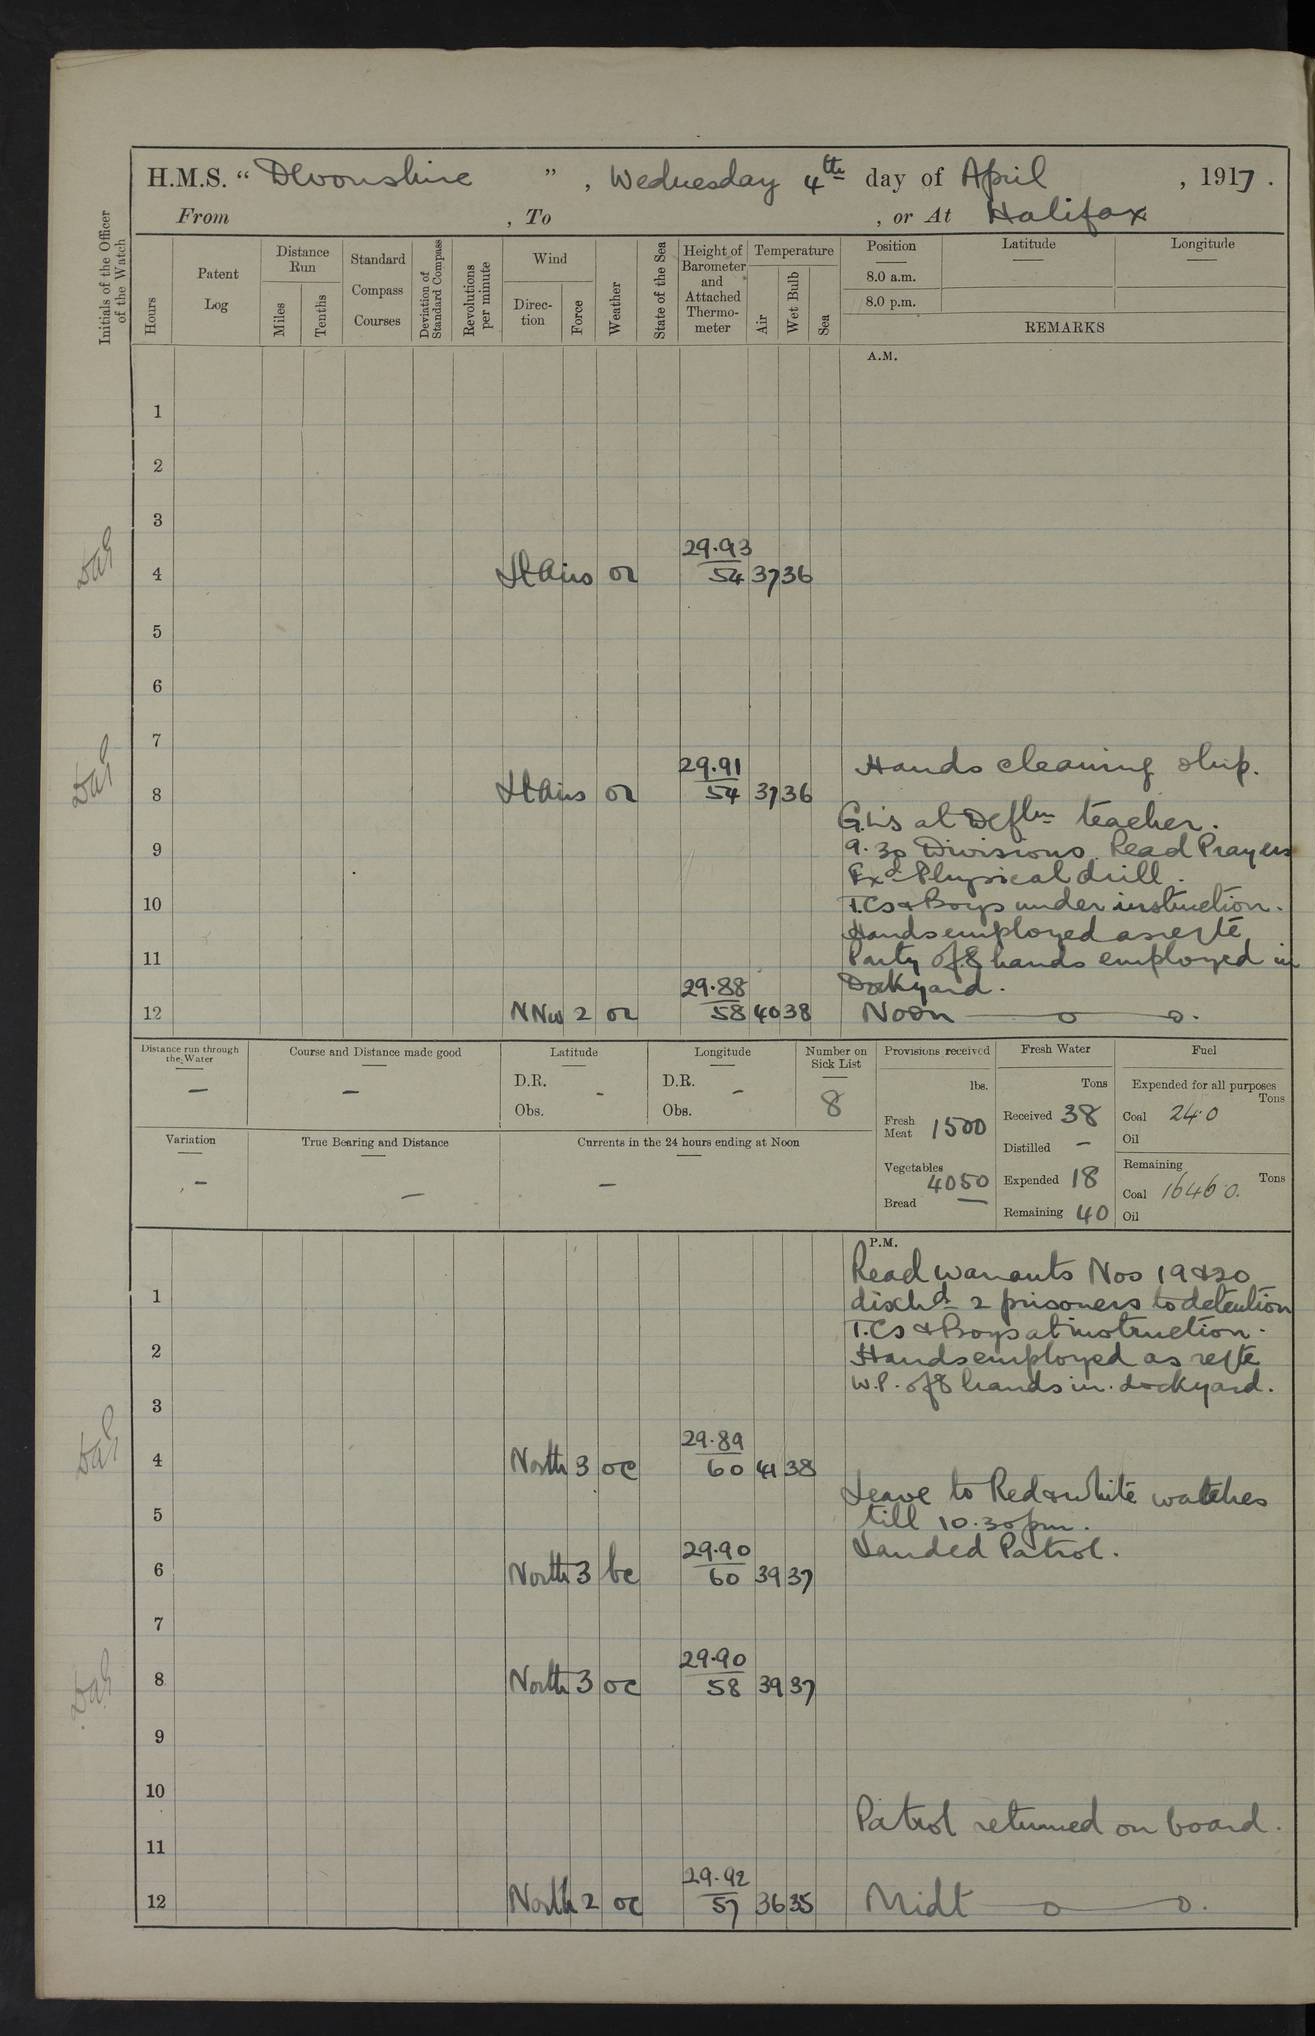 H.M.S. “ Devonshire ” , Wednesday 4th day of April , 1917 .
From , To , or At Halifax
Initials of the Officer of the Watch
Hours
Patent Log
Distance Run
Miles
Tenths
Standard Compass Courses
Deviation of Standard Compass
Revolutions per minute
Wind
Direc-tion
Force
Weather
State of the Sea
Height of Barometer and Attached Thermo-meter
Temperature
Air
Wet Bulb
Sea
Position Latitude Longitude
8.0 a.m.
8.0 p.m.
REMARKS
A.M.
1
2
3
29.93
4 Lt Airs or 54 37 36
5
6
7
29.91 Hands cleaning ship.
8 Lt Airs or 54 37 36
G.L's at Defln teacher.
9 9.30 Divisions. Read Prayers
Exd Physical drill.
10 T.Cs & Boys under instruction.
Hands employed as reqte
11 Party of 8 hands employed in
29.88 Dockyard.
12 NNW 2 or 58 40 38 Noon
Distance run through the Water
—
Course and Distance made good
—
Latitude
D.R. -
Obs.
Longitude
D.R. -
Obs.
Number on Sick List
8
Provisions received
lbs.
Fresh Meat 1500
Vegetables 4050
Bread —
Fresh Water
Tons
Received 38
Distilled —
Expended 18
Remaining 40
Fuel
Expended for all purposes
Tons
Coal 24.0
Oil
Remaining
Tons
Coal 1646.0.
Oil
Variation
—
True Bearing and Distance
—
Currents in the 24 hours ending at Noon
—
P.M.
Read warrants Nos 19 & 20
1 dischd 2 prisoners to detention
T.Cs & Boys at instruction.
2 Hands employed as reqte
W.P. of 8 hands in dockyard.
3
29.89
4 North 3 oc 60 41 38
Leave to Red & White watches
5 till 10.30pm.
29.90 Landed Patrol.
6 North 3 bc 60 39 37
7
29.90
8 North 3 oc 58 39 37
9
10
Patrol returned on board.
11
29.92
12 North 2 oc 57 36 35 Midt